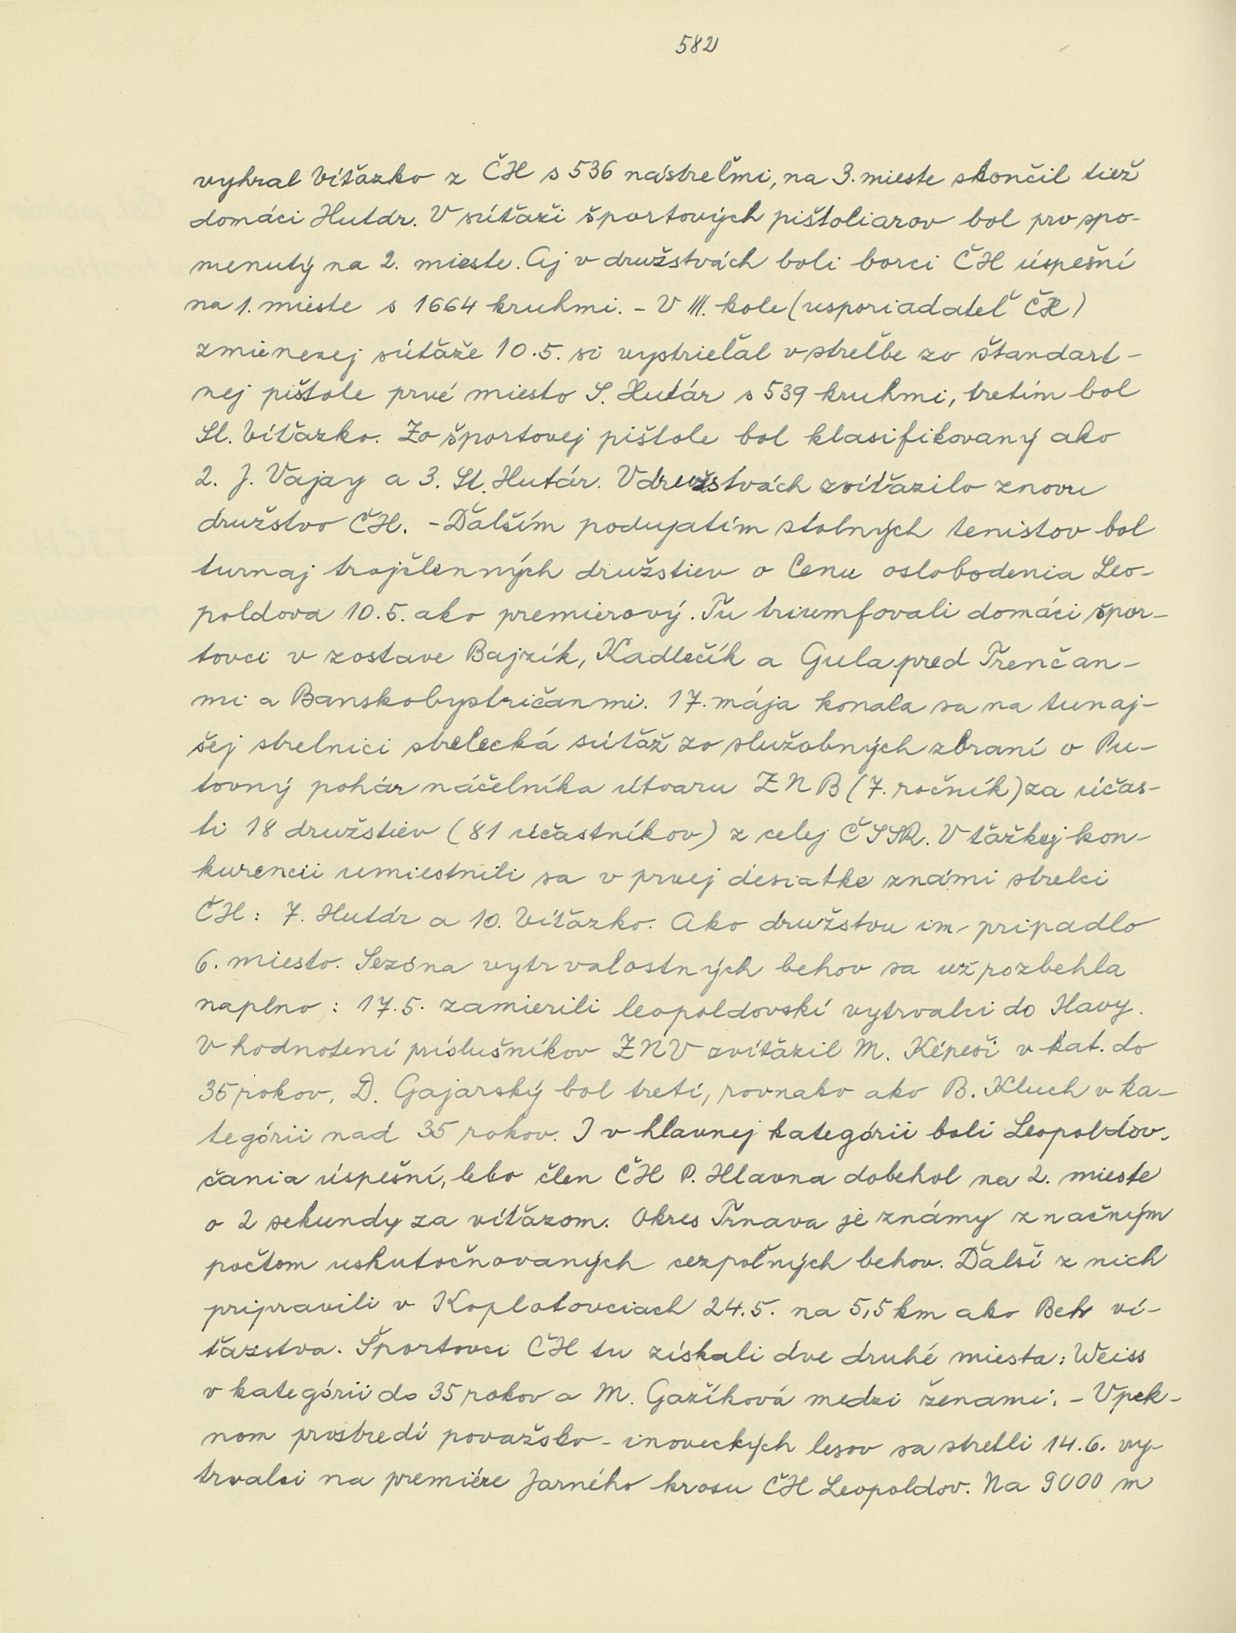 582
vyhral Víťazko z ČH s 536 nástreľmi, na 3. mieste skončil tiež
domáci Hutár. V súťaži športových pištoliarov bol prv spo-
menutý na 2. mieste. Aj v družstvách boli borci ČH úspešní
na 1. mieste s 1664 kruhmi. - V III. kole (usporiadateľ ČH)
zmienenej súťaže 10.5. si vystrieľal v streľbe zo štandart-
nej pištole prvé miesto S. Hutár s 539 kruhmi, tretím bol
Sl. Víťazko. Zo športovej pištole bol klasifikovaný ako
2. J. Vajay a 3. St. Hutár. V družstvách zvíťazilo znovu
družstvo ČH. - Ďalším podujatím stolných tenistov bol
turnaj trojčlenných družstiev o Cenu oslobodenia Leo-
poldova 10.5. ako premierový. Tu triumfovali domáci špor-
tovci v zostave Bajzík, Kadlečík a Gula pred Trenčan-
mi a Banskobystričanmi. 17. mája konala sa na tunaj-
šej strelnici strelecká súťaž zo služobných zbraní o Pu-
tovný pohár náčelníka útvaru ZNB (7. ročník) za účas-
ti 18 družstiev (81 účastníkov) z celej ČSSR. V ťažkej kon-
kurencii umiestnili sa v prvej desiatke známi strelci
ČH: 7. Hutár a 10. Víťazko. Ako družstvu im pripadlo
6. miesto. Sezóna vytrvalostných behov sa už rozbehla
naplno: 17.5. zamierili leopoldovskí vytrvalci do Ilavy.
V hodnotení príslušníkov ZNV zvíťazil M. Képeši v kat. do
35 rokov, D. Gajarský bol tretí, rovnako ako B. Kluch v ka-
tegórii nad 35 rokov. I v hlavnej kategórii boli Leopoldov-
čania úspešní, lebo člen ČH P. Hlavna dobehol na 2. mieste
o 2 sekundy za víťazom. Okres Trnava je známy značným
počtom uskutočňovaných cezpoľných behov. Ďalší z nich
pripravili v Koplotovciach 24.5. na 5,5 km ako Beh ví-
ťazstva. Športovci ČH tu získali dve druhé miesta: Weiss
v kategórii do 35 rokov a M. Gažíková medzi ženami. - V pek-
nom prostredí považsko-inoveckých lesov sa stretli 14.6. vy-
trvalci na premiére Jarného krosu ČH Leopoldov. Na 9000 m